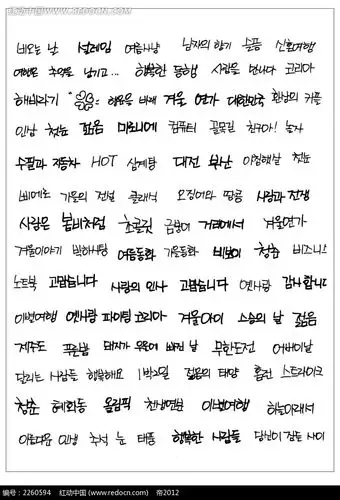 红动中国 WWW.REDOCN.COM
비오는 날 설레임 여름사냥 남자의 향기 슬픔 신혼여행
여행은 추억을 남기고... 행복한 동행 사랑을 만나다 코리아
해바라기 향유를 겨울 연가 대한민국 환상의 커플
인상 첫눈 젊음 마로니에 컴퓨터 골목길 친구야! 놀자
수필과 자동차 HOT 삼계탕 대전 부산 이럴햇살 첫눈
삐에로 가을의 전설 클래식 오징어와 땅콩 사랑과 전쟁
사랑은 봄비처럼 초콜릿 금붕어 거리에서 겨울연가
겨울이야기 박하사탕 여름동화 가을동화 비보이 청춘 비즈니스
노트북 고맙습니다 사랑의 인사 고맙습니다 옛사랑 감사합니다
이번여행 옛사랑 파이팅 코리아 겨울아이 스승의 날 젊음
제주도 푸른밤 돼지가 우물에 빠진 날 무한도전 어버이날
달리는 사람들 행복해요 1박2일 젊음의 태양 훈련 스트라이크
청춘 혜화동 올림픽 천생연분 이번여행 하늘아래서
아름다운 인생 추석 눈 태풍 행복한 사람들 당신이 잠든 사이
编号: 2260594 红动中国 (www.redocn.com) 帝2012